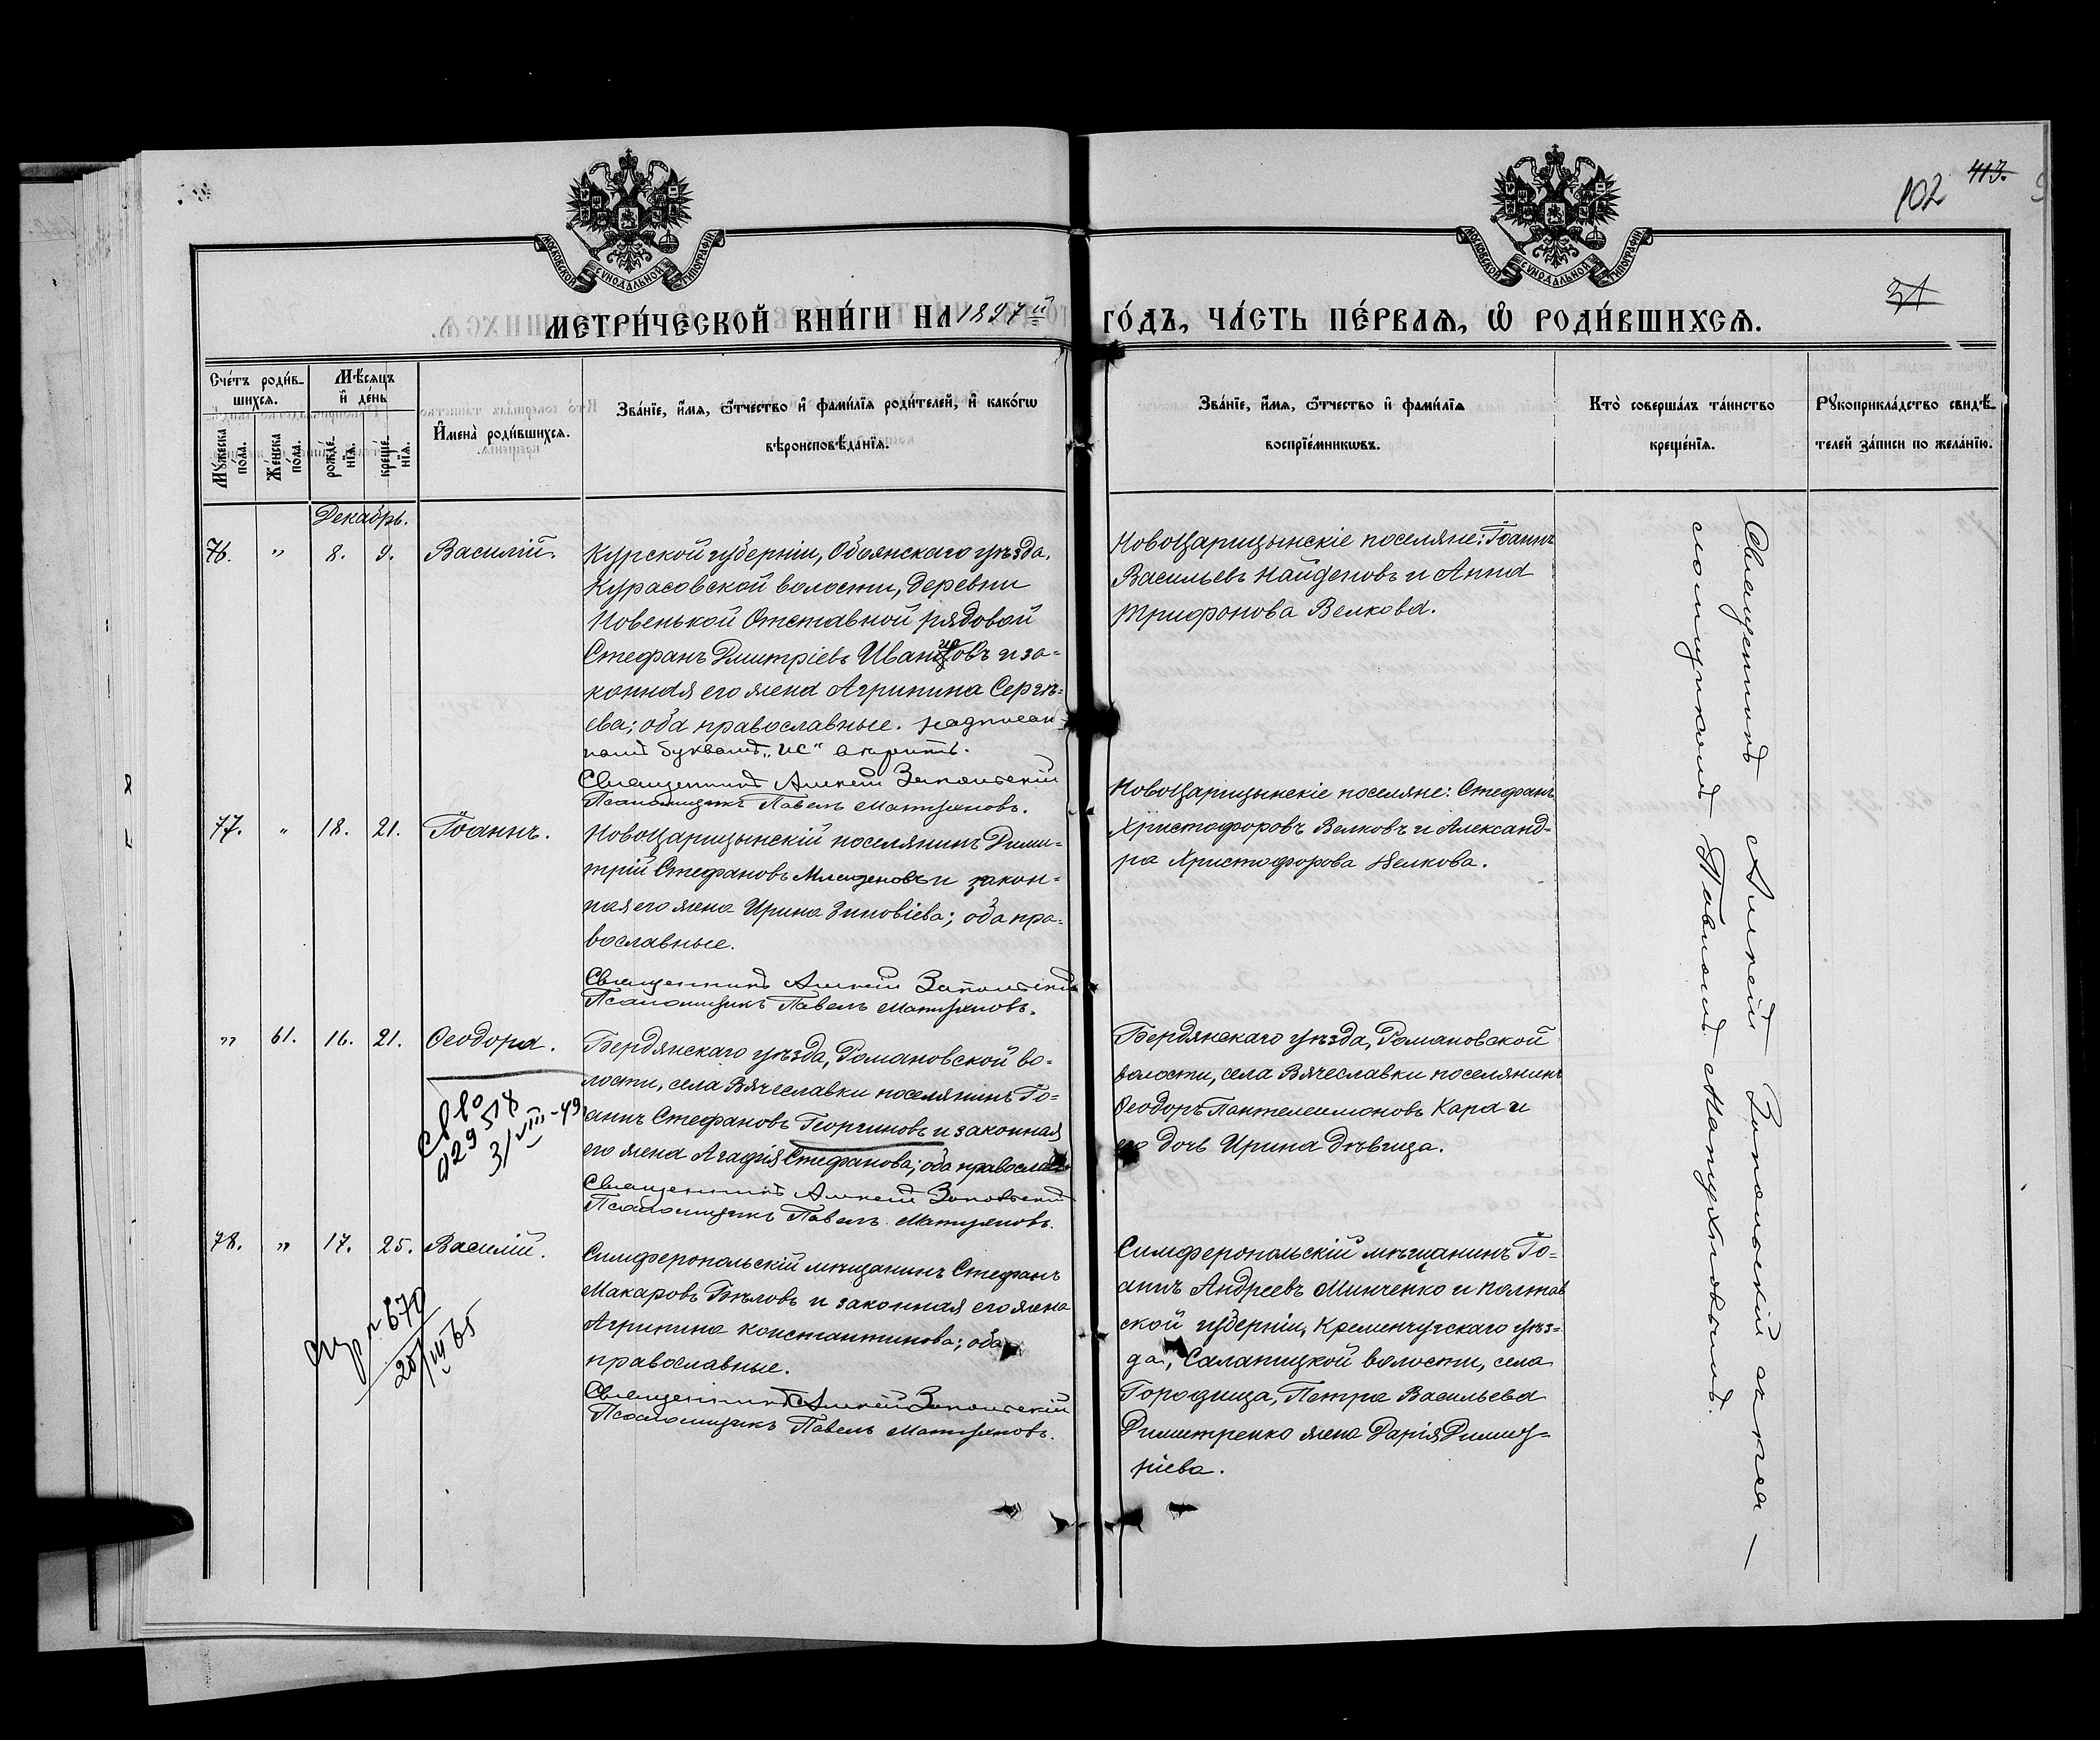 102 413.
31
МОСКОВСКОЙ СѴНОДАЛЬНОЙ ТИПОГРАФІИ
МОСКОВСКОЙ СѴНОДАЛЬНОЙ ТИПОГРАФІИ
МЕТРИ́ЧЕСКОЙ КНИ́ГИ НА 1897й ГО́ДЪ, ЧА́СТЬ ПЕ́РВАѦ, Ѡ҆ РОДИ́ВШИХСѦ.
Сче́тъ роди́в-
шихсѧ.
Мꙋ́жеска по́ла.
Же́нска по́ла.
Мѣ́сѧцъ и҆ де́нь
рожде́нїѧ.
креще́нїѧ.
И҆мена̀ роди́вшихсѧ.
Зва́нїе, и҆́мѧ, ѻ҆́тчество и҆ фами́лїѧ роди́телей, и҆ како́гѡ
вѣроисповѣ́данїѧ.
Зва́нїе, и҆́мѧ, ѻ҆́тчество и҆ фами́лїѧ
воспрїе́мникѡвъ.
Кто̀ соверша́лъ та́инство
креще́нїѧ.
Рꙋкоприкла́дство свидѣ́-
телей за́писи по жела́нїю.
Декабрь.
76. " 8. 9. Василій.
Курской губерніи, Обоянскаго уѣзда,
Курасовской волости, деревни
Новенькой Отставной рядовой
Стефанъ Дмитріевъ Ивановъ и за-
конная его жена Агрипина Сергѣ-
ева; оба православные. Надписан
ному буквамъ „ис" вѣрить.
Священникъ Алексѣй Запольскій
Псаломщикъ Павелъ Матухновъ.
НовоЦарицынскіе поселяне: Іоаннъ
Васильевъ Найденовъ и Анна
Трифонова Велкова.
77. " 18. 21. Іоаннъ.
НовоЦарицынскій поселянинъ Дими-
трій Стефановъ Младеновъ и закон-
ная его жена Ирина Зиновіева; оба пра-
вославные.
Священникъ Алексѣй Запольскій
Псаломщикъ Павелъ Матухновъ.
НовоЦарицынскіе поселяне: Стефанъ
Христофоровъ Велковъ и Александ-
ра Христофорова Велкова.
" 61. 16. 21. Ѳеодора.
Св во
029518
3/VIII-49
Бердянскаго уѣзда, Романовской во-
лости, села Вячеславки поселянинъ Іо-
аннъ Стефановъ Георгиновъ и законная
его жена Агафія Стефанова; оба правосла
Священникъ Алексѣй Запольскій
Псаломщикъ Павелъ Матухновъ.
Бердянскаго уѣзда, Романовской
волости, села Вячеславки поселянинъ
Ѳеодоръ Пантелеимоновъ Кара и
его дочь Ирина дѣвица.
78. " 17. 25. Василій.
670
20/III 65
Симферопольскій мѣщанинъ Стефанъ
Макаровъ Бѣловъ и законная его жена
Агрипина Константинова; оба
православные.
Священникъ Алексѣй Запольскій
Псаломщикъ Павелъ Матухновъ.
Симферопольскій мѣщанинъ Іо-
аннъ Андреевъ Минченко и Полтав
ской губерніи, Кременчугскаго уѣз-
да, Салапицкой волости, села
Городища, Петра Васильева
Димитренко жена Дарія Димит-
ріева.
Священникъ Алексѣй Запольскій съ пса-
ломщикомъ Павломъ Матухновымъ.